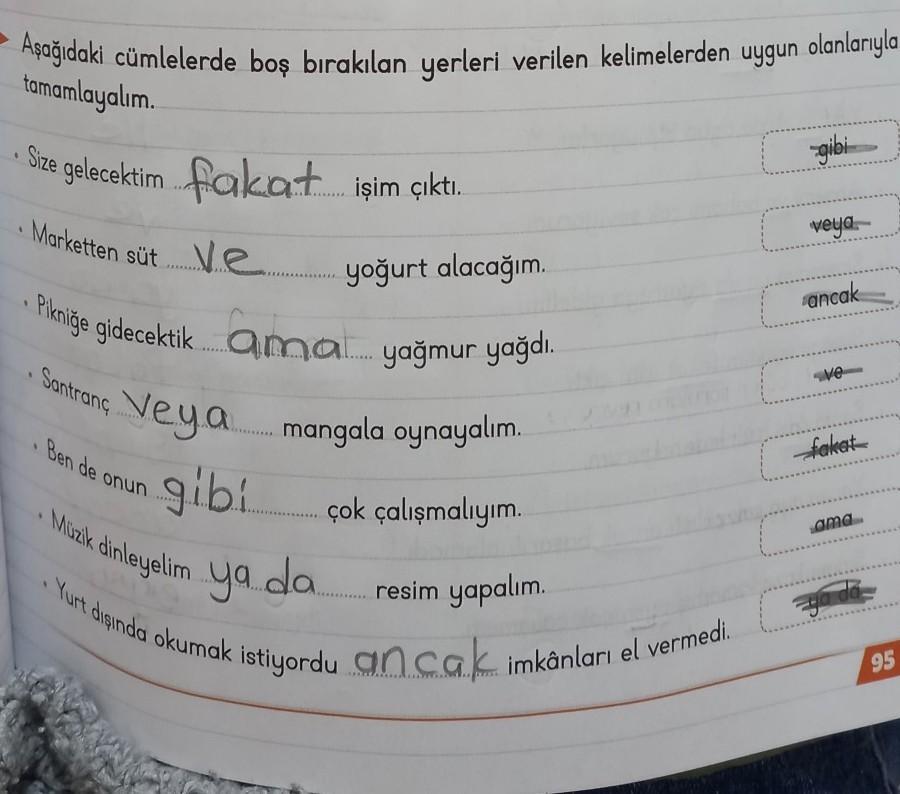 Aşağıdaki cümlelerde boş bırakılan yerleri verilen kelimelerden uygun olanlarıyla
tamamlayalım.
• Size gelecektim fakat işim çıktı.
gibi
• Marketten süt ve yoğurt alacağım.
veya
• Pikniğe gidecektik ama yağmur yağdı.
ancak
• Santranç veya mangala oynayalım.
ve
• Ben de onun gibi çok çalışmalıyım.
fakat
• Müzik dinleyelim ya da resim yapalım.
ama
• Yurt dışında okumak istiyordu ancak imkânları el vermedi.
ya da
95